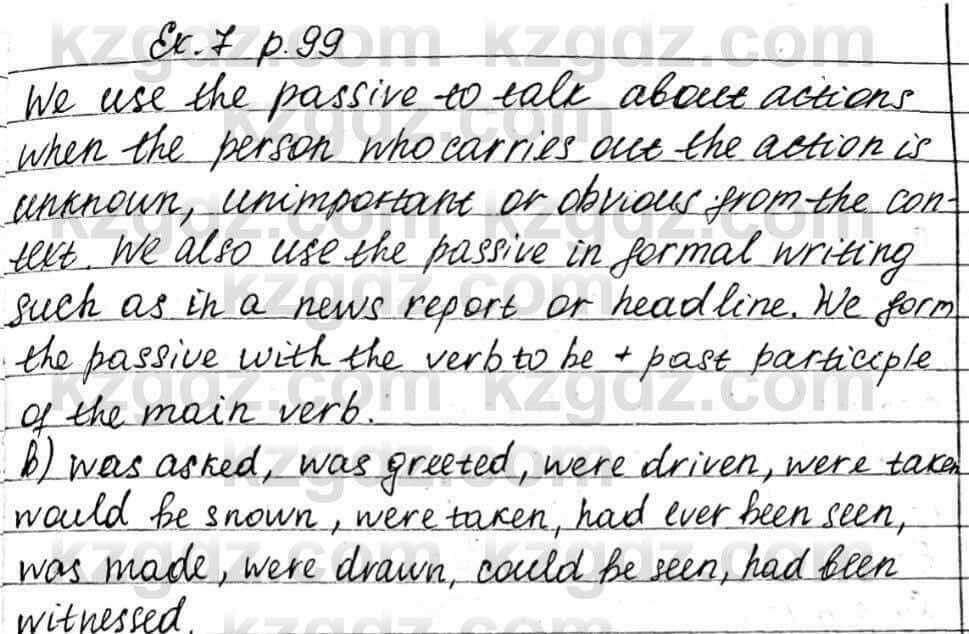 Ex. 7 p. 99
We use the passive to talk about actions
when the person who carries out the action is
unknown, unimportant or obvious from the con-
text. We also use the passive in formal writing
such as in a news report or headline. We form
the passive with the verb to be + past participle
of the main verb.
b) was asked, was greeted, were driven, were taken
would be snown, were taken, had ever been seen,
was made, were drawn, could be seen, had been
witnessed.
kzgdz.com